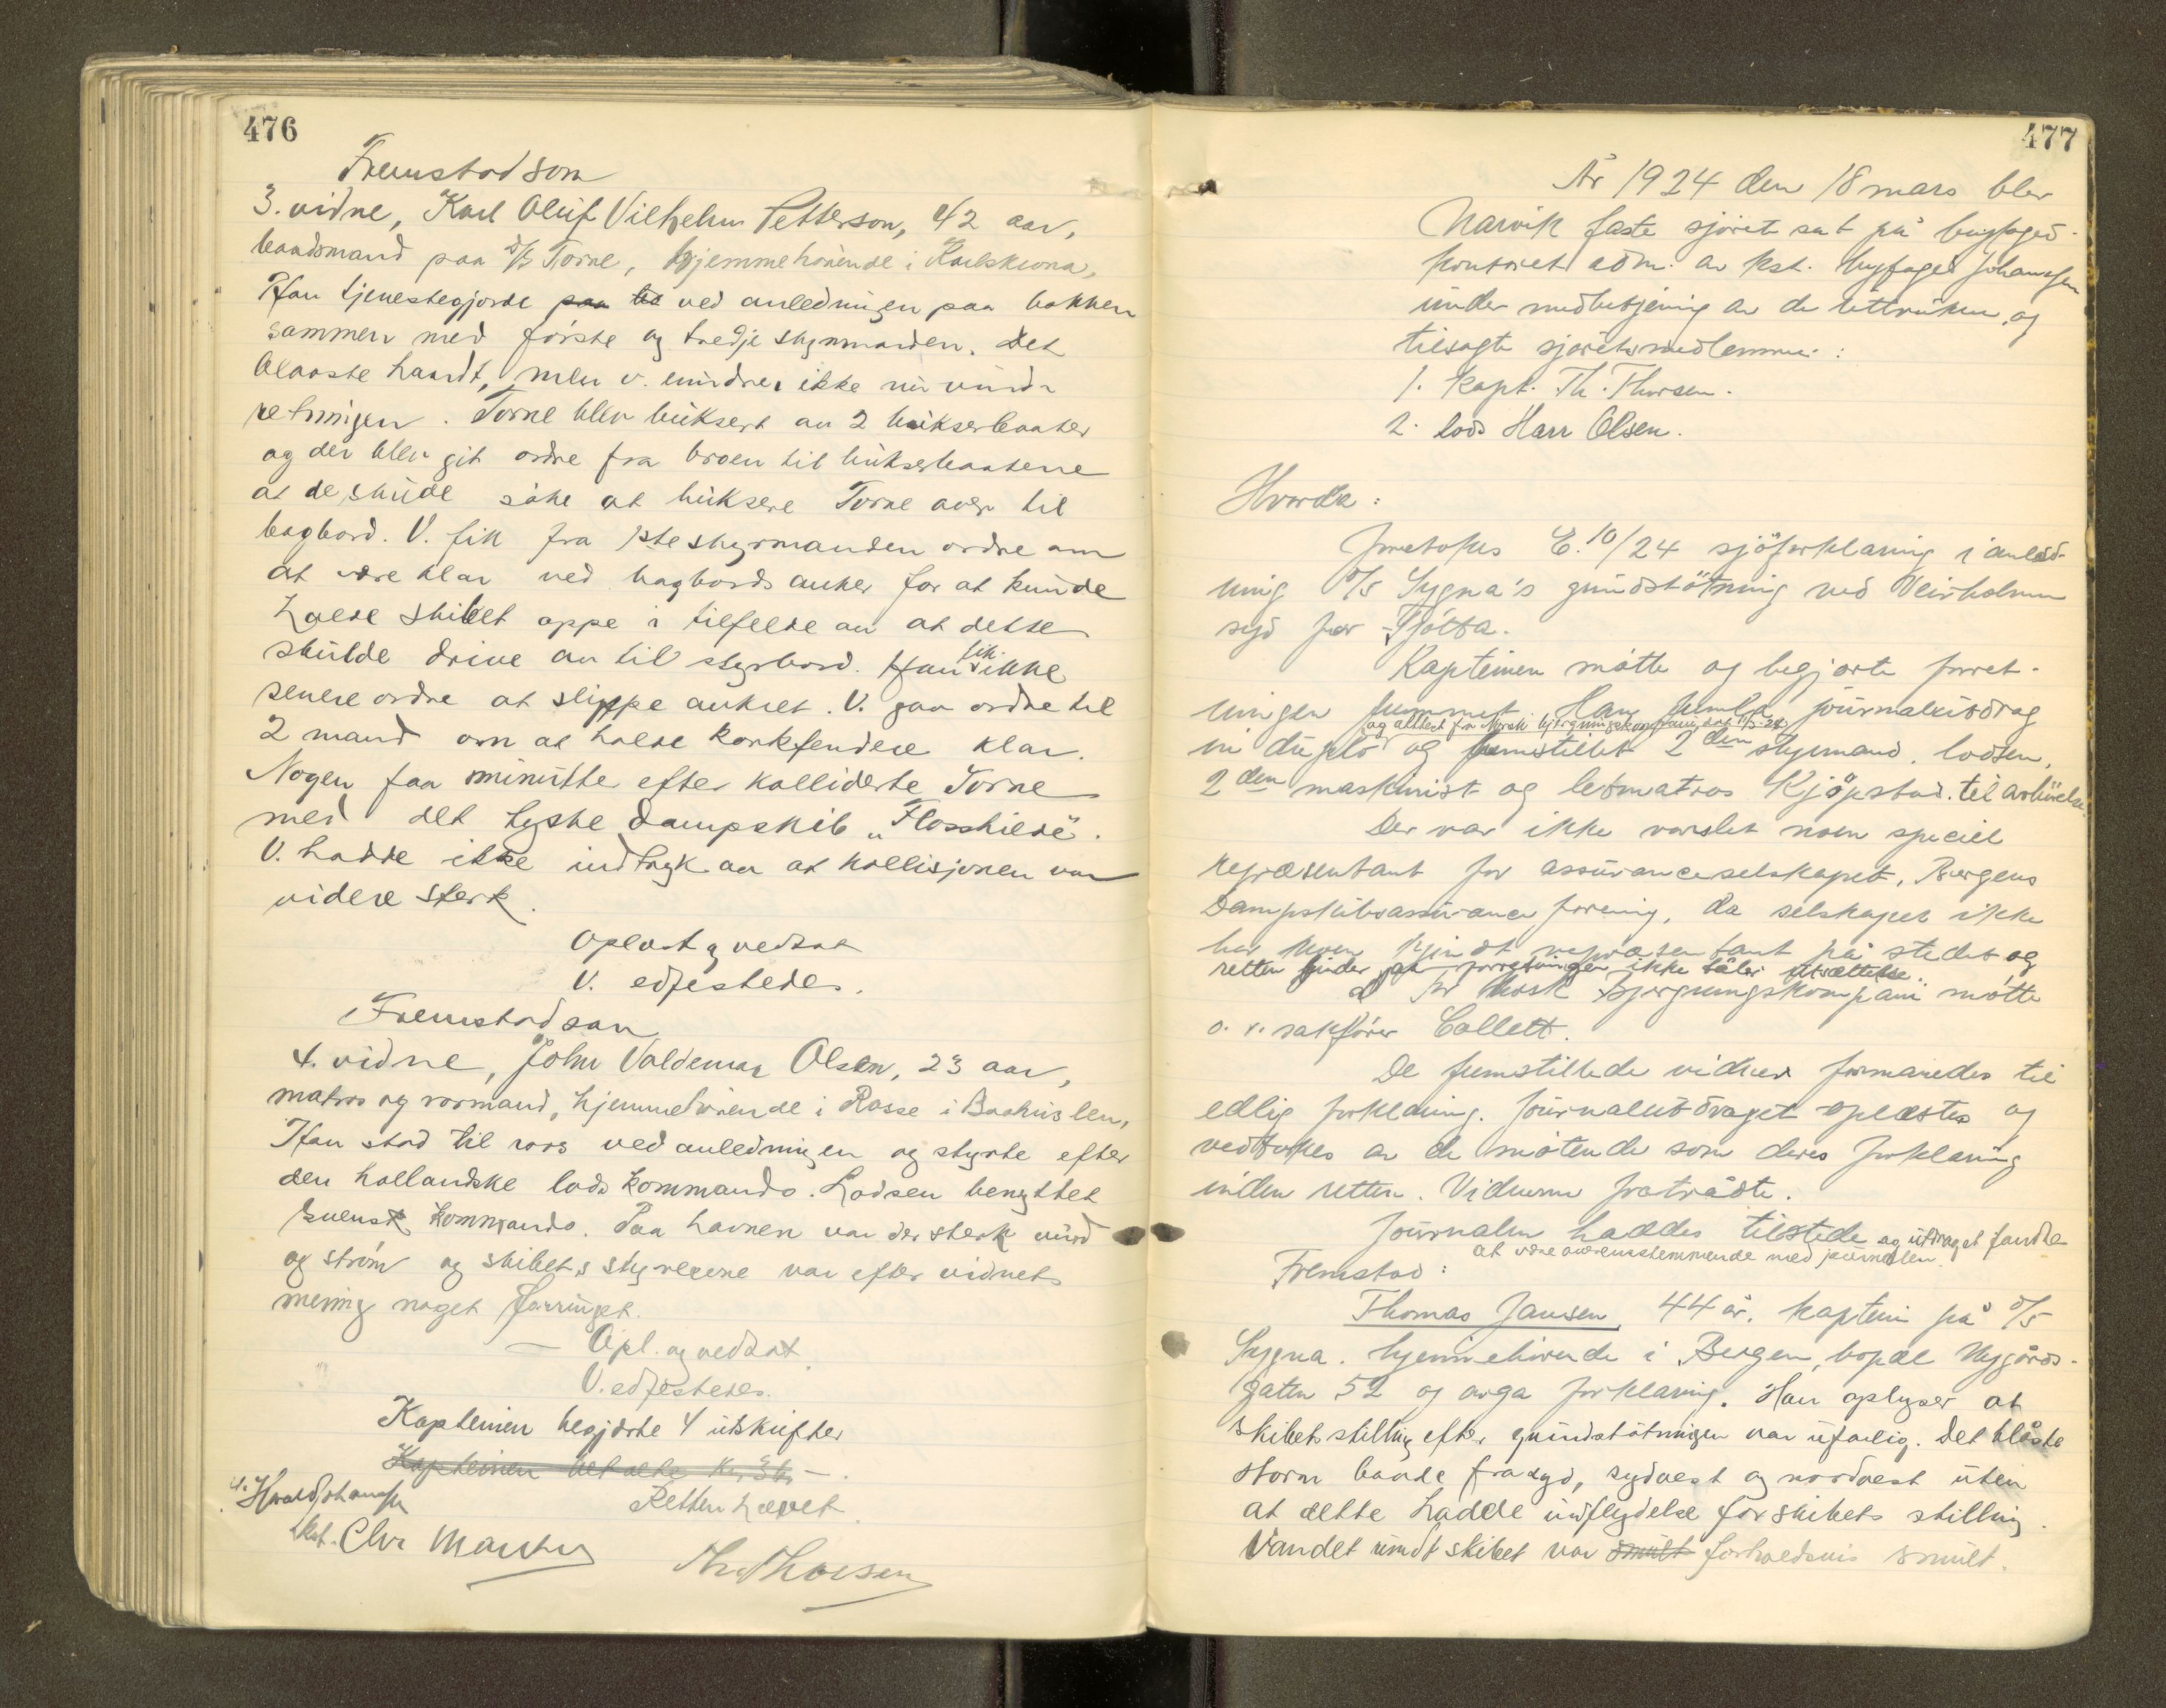 476
Fremstod som
3. vidne, Karl Oluf Vilhelm Petterson, 42 aar,
baadsmand paa d/s Torne, hjemmehörende i Karlskrona.
Han tjenestegjorde paa ved anledningen paa bakken
sammen med förste og tredje styrmanden. Det
blaaste haardt, men v. erindrer ikke nu vind-
retningen. Torne blev buksert av 2 bukserbaater
og der blev git ordre fra broen til bukserbaatene
at de skulde söke at buksere Torne over til
bagbord. V. fik fra 1ste styrmanden ordre om
at være klar ved bagbords anker for at kunde
holde skibet oppe i tilfelde av at dette
skulde drive av til styrbord. Han fik ikke
senere ordre at slippe ankret. V. gav ordre til
2 mand om at holde korkfendere klar.
Nogen faa minutter efter kolliderte Torne
med det tyske dampskib „Flosshilde".
V. hadde ikke indtryk av at kollisjonen var
videre sterk.
Oplæst og vedtat
V. edfestedes.
Fremstod som
4. vidne, John Valdemar Olsen, 23 aar,
matros og rormand, hjemmehörende i Rosse i Baahuslen,
Han stod til rors ved anledningen og styrte efter
den hollandske lods kommando. Lodsen benyttet
svensk kommando. Paa havnen var der sterk vind
og ström og skibets styreevne var efter vidnets
mening noget forringet.
— Opl. og vedtat.
V. edfestedes.
Kapteinen begjærte 4 utskrifter
Kapteinen betalte kr. 36,—.
Retten hævet.
kst. Chr Martin
Th. Thorsen
477
År 1924 den 18 mars blev
Narvik faste sjöret sat på byfoged-
kontoret adm. av kst. byfoged Johanssen
under medbetjening av de rettsvidner og
tilsagte sjöretsmedlemmer:
1. Kapt. Th. Thorsen.
2. lods Harr Olsen.
Hvorda:
Foretokes E. 10/24 sjöforklaring i anled-
ning d/s Sygna's grundstötning ved Veirholmen
syd for Tjötta.
Kapteinen mötte og begjærte forret-
ningen fremmet. Han fremla journalutdrag
og attest fra Norsk bjergningskompani dat. 11/3-24
in duplo og fremstillet 2den styrmand, lodsen,
2den maskinist og letmatros Kjöpstad til avhörelse.
Der var ikke varslet noen speciel
repræsentant for assuranceselskapet, Bergens
Dampskibsassuranceforening, da selskapet ikke
har noen kjendt repræsentant på stedet og
retten finder at forretningen ikke tåler utsættelse.
For Norsk Bjergningskompani mötte
o. r. sakförer Collett.
De fremstillede vidner formanedes til
edlig forklaring. Journalutdraget oplæstes og
vedtokes av de mötende som deres forklaring
inden retten. Vidnerne fratrådte.
Journalen haddes tilstede og utdraget fandtes
at være overensstemmende med journalen.
Fremstod:
Thomas Jansen, 44 år, kaptein på d/s
Sygna, hjemmehörende i Bergen, bopæl Nygårds-
gaten 52 og avga forklaring. Han oplyser at
skibets stilling efter grundstötningen var ufarlig. Det blåste
storm baade fra syd, sydvest og nordvest uten
at dette hadde indflydelse for skibets stilling.
Vandet rundt skibet var smult forholdsvis smult.